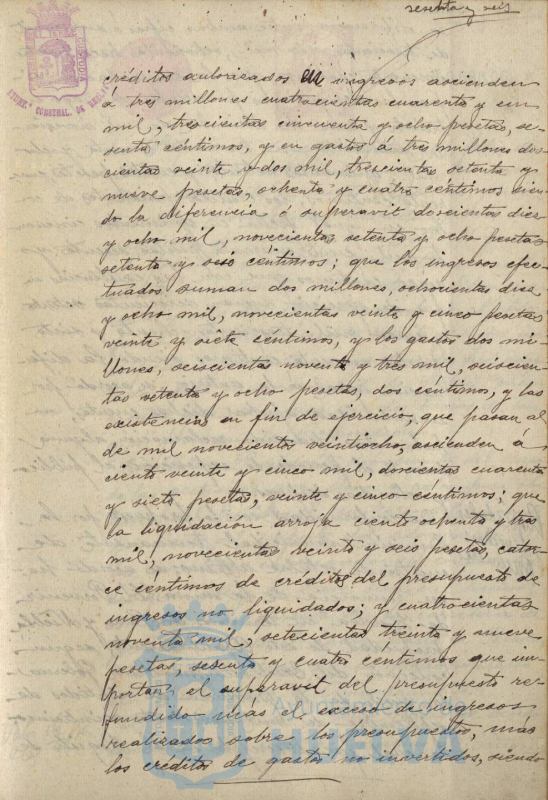 sesenta y seis
créditos autorizados en ingresos ascienden
á tres millones cuatrocientas cuarenta y un
mil, trescientas cincuenta y ocho pesetas, se-
senta céntimos, y en gastos á tres millones dos-
cientas veinte y dos mil, trescientas setenta y
nueve pesetas, ochenta y cuatro céntimos sien-
do la diferencia ó superavit doscientas diez
y ocho mil, novecientas setenta y ocho pesetas
setenta y seis céntimos; que los ingresos efec-
tuados suman dos millones, ochocientas diez
y ocho mil, novecientas veinte y cinco pesetas
veinte y siete céntimos, y los gastos dos mi-
llones, seiscientas noventa y tres mil, seiscien-
tas setenta y ocho pesetas, dos céntimos, y las
existencias en fin de ejercicio, que pasan al
de mil novecientos veintiocho, ascienden á
ciento veinte y cinco mil, doscientas cuarenta
y siete pesetas, veinte y cinco céntimos; que
la liquidación arroja ciento ochenta y tres
mil, novecientas veinte y seis pesetas, cator-
ce céntimos de créditos del presupuesto de
ingresos no liquidados; y cuatrocientas
noventa mil, setecientas treinta y nueve
pesetas, sesenta y cuatro céntimos que im-
portan el superavit del presupuesto re-
fundido más el exceso de ingresos
realizados sobre los presupuestos, más
los créditos de gastos no invertidos, siendo
HUELVA